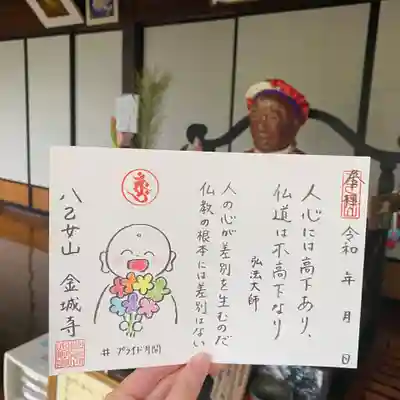 奉拝
令和 年 月 日
人心には高下あり、
仏道は不高下なり
弘法大師
人の心が差別を生むのだ
仏教の根本には差別はない
# プライド月間
八乙女山 金城寺